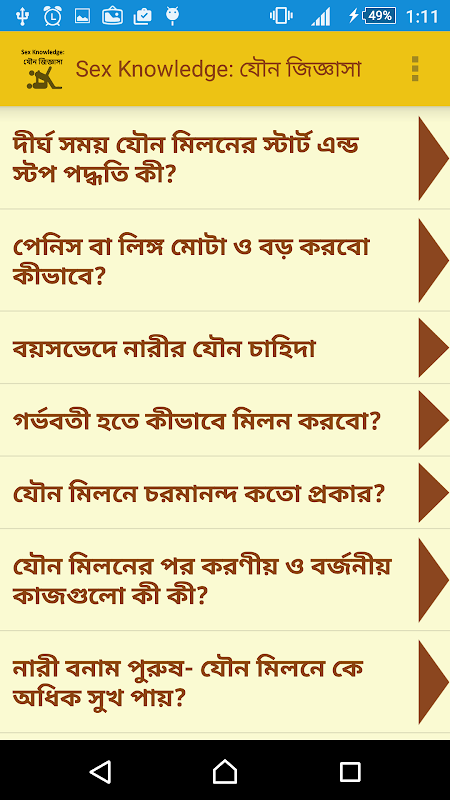 49% 1:11
Sex Knowledge:
যৌন জিজ্ঞাসা
Sex Knowledge: যৌন জিজ্ঞাসা
দীর্ঘ সময় যৌন মিলনের স্টার্ট এন্ড
স্টপ পদ্ধতি কী?
পেনিস বা লিঙ্গ মোটা ও বড় করবো
কীভাবে?
বয়সভেদে নারীর যৌন চাহিদা
গর্ভবতী হতে কীভাবে মিলন করবো?
যৌন মিলনে চরমানন্দ কতো প্রকার?
যৌন মিলনের পর করণীয় ও বর্জনীয়
কাজগুলো কী কী?
নারী বনাম পুরুষ- যৌন মিলনে কে
অধিক সুখ পায়?